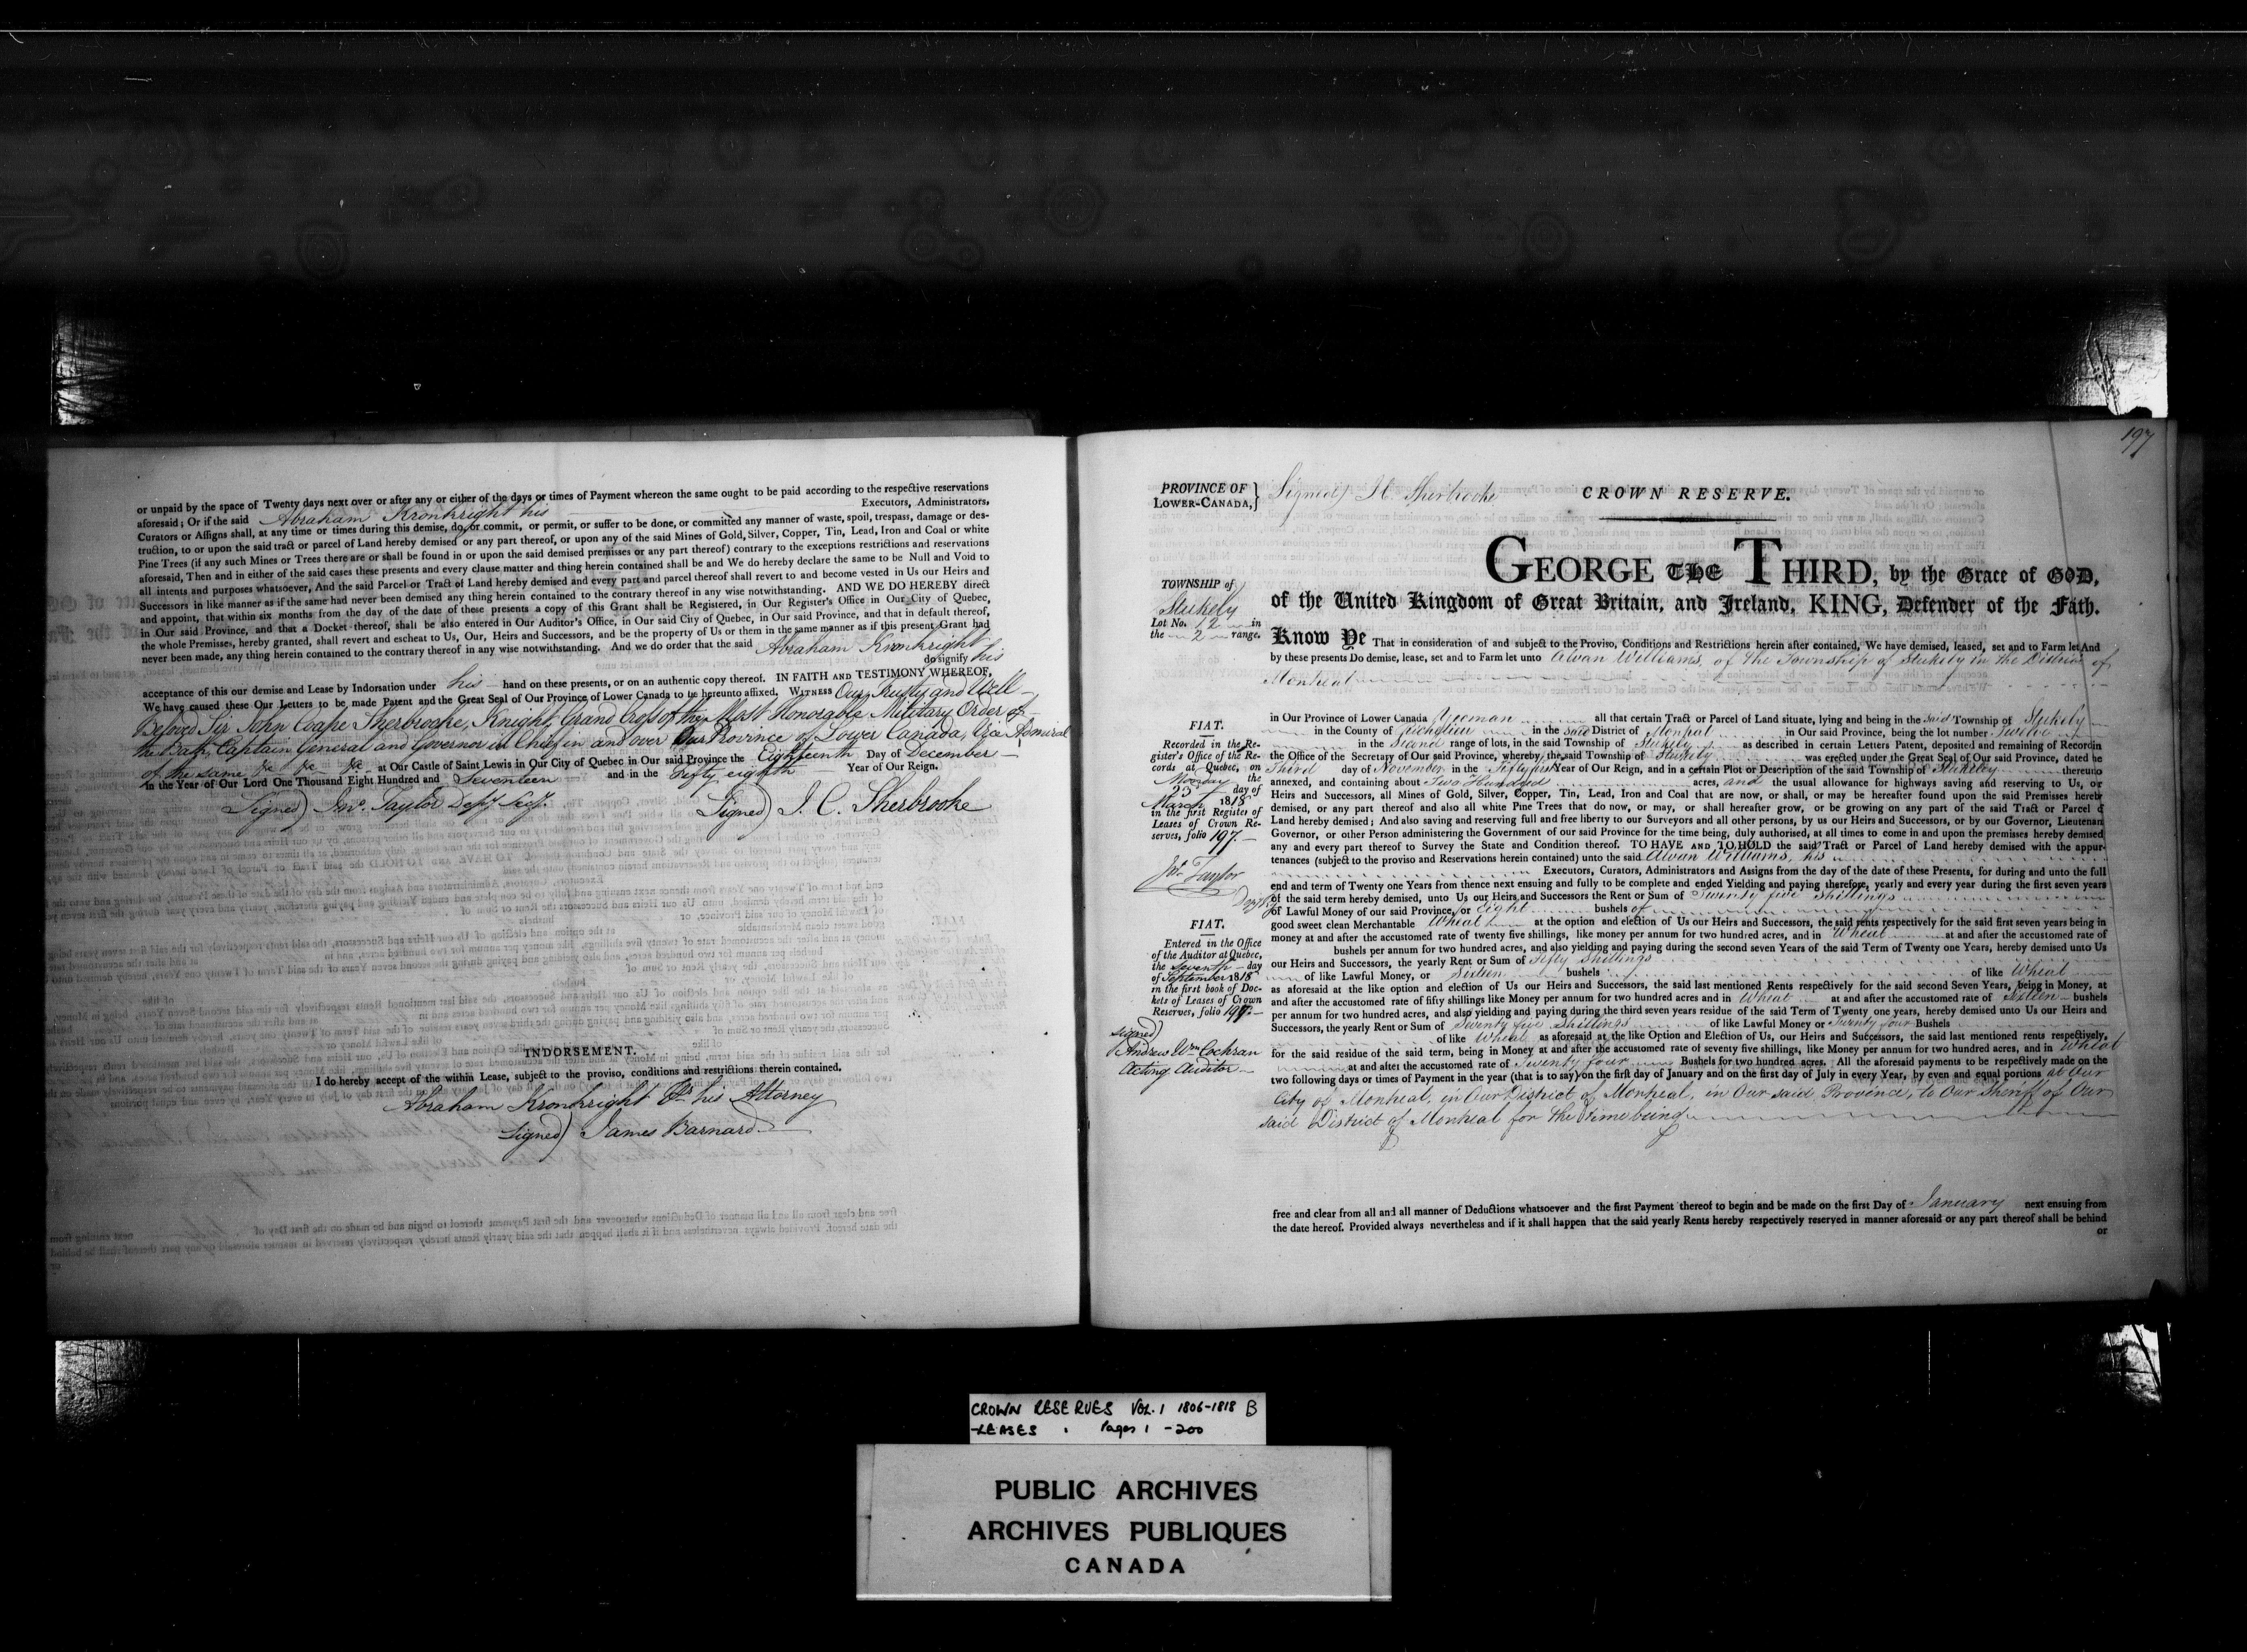 or unpaid by the space of Twenty days next over or after any or either of the days or times of Payment whereon the same ought to be paid according to the respective reservations
aforesaid; Or if the said Abraham Kronkright his Executors, Administrators,
Curators or Assigns shall, at any time or times during this demise, do, or commit, or permit, or suffer to be done, or committed any manner of waste, spoil, trespass, damage or des-
truction, to or upon the said tract or parcel of Land hereby demised or any part thereof, or upon any of the said Mines of Gold, Silver, Copper, Tin, Lead, Iron and Coal or white
Pine Trees (if any such Mines or Trees there are or shall be found in or upon the said demised premises or any part thereof) contrary to the exceptions restrictions and reservations
aforesaid, Then and in either of the said cases these presents and every clause matter and thing herein contained shall be and We do hereby declare the same to be Null and Void to
all intents and purposes whatsoever, And the said Parcel or Tract of Land hereby demised and every part and parcel thereof shall revert to and become vested in Us our Heirs and
Successors in like manner as if the same had never been demised any thing herein contained to the contrary thereof in any wise notwithstanding. AND WE DO HEREBY direct
and appoint, that within six months from the day of the date of these presents a copy of this Grant shall be Registered, in Our Register's Office in Our City of Quebec,
in Our said Province, and that a Docket thereof, shall be also entered in Our Auditor's Office, in Our said City of Quebec, in Our said Province, and that in default thereof,
the whole Premises, hereby granted, shall revert and escheat to Us, Our, Heirs and Successors, and be the property of Us or them in the same manner as if this present Grant had
never been made, any thing herein contained to the contrary thereof in any wise notwithstanding. And we do order that the said Abraham Kronkright
do signify his
acceptance of this our demise and Lease by Indorsation under his hand on these presents, or on an authentic copy thereof. IN FAITH AND TESTIMONY WHEREOF,
We have caused these Our Letters to be made Patent and the Great Seal of Our Province of Lower Canada to be hereunto affixed. WITNESS Our Trusty and Well
Beloved Sir John Coape Sherbrooke, Knight, Grand Cross of the Most Honorable Military Order of
the Bath, Captain General and Governor in Chief in and over Our Province of Lower Canada, Vice Admiral
of the same &c &c &c at Our Castle of Saint Lewis in Our City of Quebec in Our said Province the Eighteenth Day of December
in the Year of Our Lord One Thousand Eight Hundred and Seventeen and in the Fifty eighth Year of Our Reign.
Signed) Jno. Taylor Depy. Secy. Signed) J. C. Sherbrooke
INDORSEMENT.
I do hereby accept of the within Lease, subject to the proviso, conditions and restrictions therein contained.
Abraham Kronkright Pr. his Attorney
Signed) James Barnard
197
PROVINCE OF
LOWER-CANADA, } Signed) J C Sherbrooke
CROWN RESERVE.
GEORGE THE THIRD, by the Grace of GOD,
of the United Kingdom of Great Britain, and Ireland, KING, Defender of the Faith.
TOWNSHIP of
Stukely
Lot No. 12 in
the 2 range.
Know Ye That in consideration of and subject to the Proviso, Conditions and Restrictions herein after contained, We have demised, leased, set and to Farm let And
by these presents Do demise, lease, set and to Farm let unto Alvan Williams, of the Township of Stukely in the District of
Montreal
in Our Province of Lower Canada Yeoman all that certain Tract or Parcel of Land situate, lying and being in the Said Township of Stukely
in the County of Richelieu in the Said District of Montreal in Our said Province, being the lot number Twelve
in the Second range of lots, in the said Township of Stukely as described in certain Letters Patent, deposited and remaining of Record in
the Office of the Secretary of Our said Province, whereby the said Township of Stukely was erected under the Great Seal of Our said Province, dated he
Third day of November in the Fifty first Year of Our Reign, and in a certain Plot or Description of the said Township of Stukeley thereunto
annexed, and containing about Two Hundred acres, and the usual allowance for highways saving and reserving to Us, our
Heirs and Successors, all Mines of Gold, Silver, Copper, Tin, Lead, Iron and Coal that are now, or shall, or may be hereafter found upon the said Premises hereby
demised, or any part thereof and also all white Pine Trees that do now, or may, or shall hereafter grow, or be growing on any part of the said Tract or Parcel of
Land hereby demised; And also saving and reserving full and free liberty to our Surveyors and all other persons, by us our Heirs and Successors, or by our Governor, Lieutenant
Governor, or other Person administering the Government of our said Province for the time being, duly authorised, at all times to come in and upon the premises hereby demised
any and every part thereof to Survey the State and Condition thereof. TO HAVE AND TO HOLD the said Tract or Parcel of Land hereby demised with the appur-
tenances (subject to the proviso and Reservations herein contained) unto the said Alvan Williams, his
Executors, Curators, Administrators and Assigns from the day of the date of these Presents, for during and unto the full
end and term of Twenty one Years from thence next ensuing and fully to be complete and ended Yielding and paying therefore, yearly and every year during the first seven years
of the said term hereby demised, unto Us our Heirs and Successors the Rent or Sum of Twenty five Shillings
of Lawful Money of our said Province, or Eight bushels of
good sweet clean Merchantable Wheat at the option and election of Us our Heirs and Successors, the said rents respectively for the said first seven years being in
money at and after the accustomed rate of twenty five shillings, like money per annum for two hundred acres, and in Wheat at and after the accustomed rate of
bushels per annum for two hundred acres, and also yielding and paying during the second seven Years of the said Term of Twenty one Years, hereby demised unto Us
our Heirs and Successors, the yearly Rent or Sum of Fifty Shillings
of like Lawful Money, or Sixteen bushels of like Wheat
as aforesaid at the like option and election of Us our Heirs and Successors, the said last mentioned Rents respectively for the said second Seven Years, being in Money, at
and after the accustomed rate of fifty shillings like Money per annum for two hundred acres and in Wheat at and after the accustomed rate of Sixteen bushels
per annum for two hundred acres, and also yielding and paying during the third seven years residue of the said Term of Twenty one years, hereby demised unto Us our Heirs and
Successors, the yearly Rent or Sum of Seventy five Shillings of like Lawful Money or Twenty four Bushels
of like Wheat as aforesaid at the like Option and Election of Us, our Heirs and Successors, the said last mentioned rents respectively,
for the said residue of the said term, being in Money at and after the accustomed rate of seventy five shillings, like Money per annum for two hundred acres, and in Wheat
at and after the accustomed rate of Twenty four Bushels for two hundred acres. All the aforesaid payments to be respectively made on the
two following days or times of Payment in the year (that is to say) on the first day of January and on the first day of July in every Year, by even and equal portions at Our
City of Montreal, in Our District of Montreal, in Our said Province, to Our Sheriff of Our
said District of Montreal for the time being
free and clear from all and all manner of Deductions whatsoever and the first Payment thereof to begin and be made on the first Day of January next ensuing from
the date hereof. Provided always nevertheless and if it shall happen that the said yearly Rents hereby respectively reserved in manner aforesaid or any part thereof shall be behind
or
FIAT.
Recorded in the Re-
gister's Office of the Re-
cords at Quebec, on
Monday the
23d day of
March 1818
in the first Register of
Leases of Crown Re-
serves, folio 197.
Jno. Taylor
FIAT.
Entered in the Office
of the Auditor at Quebec,
the Seventh day
of September 1818
in the first book of Doc-
kets of Leases of Crown
Reserves, folio 197.
signed)
Andrew Wm Cochran
Acting Auditor
CROWN RESERVES VOL. 1 1806-1818 B
-LEASES Pages 1 -200
PUBLIC ARCHIVES
ARCHIVES PUBLIQUES
CANADA